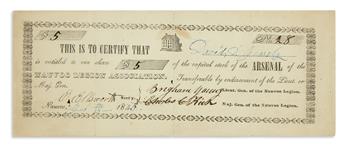 $5 No 28
THIS IS TO CERTIFY THAT
is entitled to one share $5 of the capital stock of the ARSENAL of the
NAUVOO LEGION ASSOCIATION. Transferable by endorsement of the Lieut. or
Maj. Gen.
Sec'ry. Brigham Young Lieut. Gen. of the Nauvoo Legion.
Nauvoo, 1845 Charles C Rich Maj. Gen. of the Nauvoo Legion.